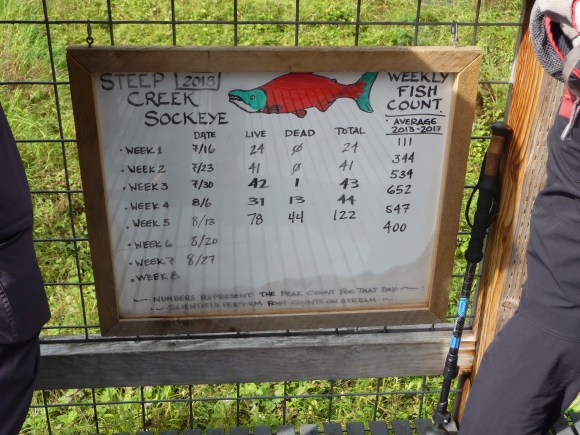 STEEP 2018
CREEK
SOCKEYE
WEEKLY
FISH
COUNT
DATE LIVE DEAD TOTAL AVERAGE
2013-2017
• WEEK 1 7/16 24 Ø 24 111
• WEEK 2 7/23 41 Ø 41 344
• WEEK 3 7/30 42 1 43 534
• WEEK 4 8/6 31 13 44 652
• WEEK 5 8/13 78 44 122 547
• WEEK 6 8/20 400
• WEEK 7 8/27
• WEEK 8
~ NUMBERS REPRESENT THE PEAK COUNT FOR THAT DAY ~
~ SCIENTISTS PERFORM FOOT COUNTS ON STREAM ~